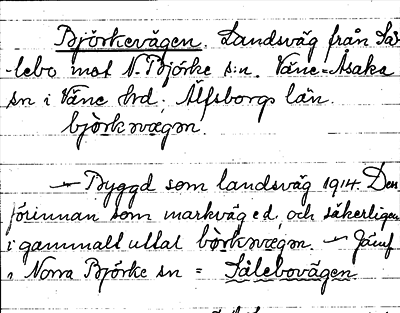 Björkevägen. Landsväg från Så-
lebo mot N. Björke s:n. Väne-Åsaka
sn i Väne hrd; Älfsborgs län.
björkvægən.
— Byggd som landsväg 1914. Den
förinnan som markväg ed. och säkerligen
i gammalt uttal börkvægən. — Jämf
i Norra Björke sn = Sålebovägen.